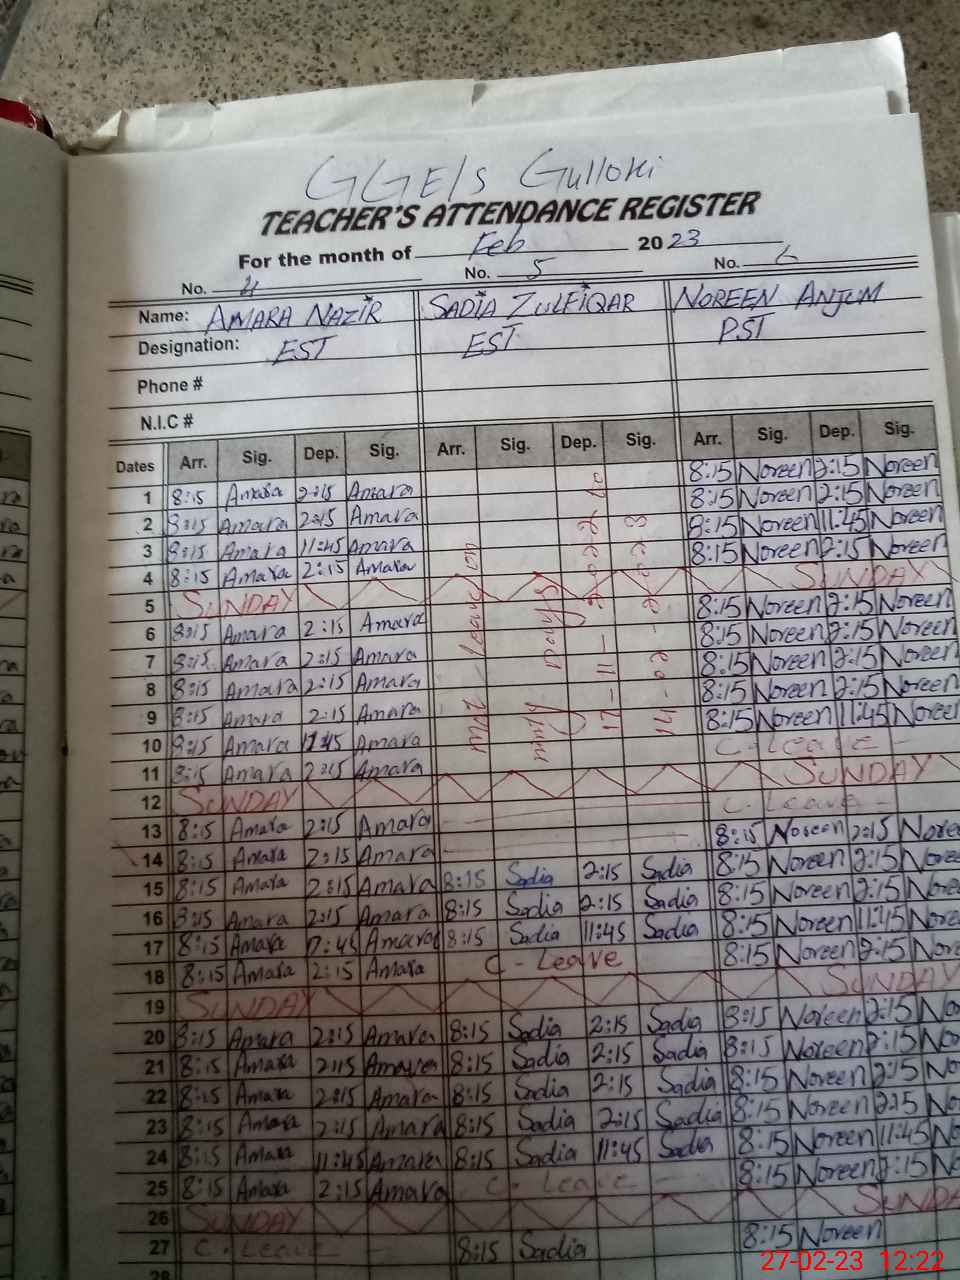 GGE/S Gulloki
TEACHER'S ATTENDANCE REGISTER
For the month of Feb 2023
No. 4 No. 5 No. 6
Name: AMARA NAZIR SADIA ZULFIQAR NOREEN ANJUM
Designation: EST EST PST
Phone #
N.I.C #
Dates Arr. Sig. Dep. Sig. Arr. Sig. Dep. Sig. Arr. Sig. Dep. Sig.
1 8:15 Amara 2:15 Amara 8:15 Noreen 2:15 Noreen
2 8:15 Amara 2:15 Amara 8:15 Noreen 2:15 Noreen
3 8:15 Amara 11:45 Amara 8:15 Noreen 11:45 Noreen
4 8:15 Amara 2:15 Amara 8:15 Noreen 2:15 Noreen
5 SUNDAY SUNDAY
6 8:15 Amara 2:15 Amara 8:15 Noreen 2:15 Noreen
7 8:15 Amara 2:15 Amara 8:15 Noreen 2:15 Noreen
8 8:15 Amara 2:15 Amara 8:15 Noreen 2:15 Noreen
9 8:15 Amara 2:15 Amara 8:15 Noreen 2:15 Noreen
10 8:15 Amara 11:45 Amara 8:15 Noreen 11:45 Noreen
11 8:15 Amara 2:15 Amara C. Leave
12 SUNDAY SUNDAY
13 8:15 Amara 2:15 Amara C. Leave
14 8:15 Amara 2:15 Amara 8:15 Noreen 2:15 Nore
15 8:15 Amara 2:15 Amara 8:15 Sadia 2:15 Sadia 8:15 Noreen 2:15 Nore
16 8:15 Amara 2:15 Amara 8:15 Sadia 2:15 Sadia 8:15 Noreen 2:15 Nore
17 8:15 Amara 12:45 Amara 8:15 Sadia 11:45 Sadia 8:15 Noreen 11:45 Nore
18 8:15 Amara 2:15 Amara C - Leave 8:15 Noreen 2:15 Nor
19 SUNDAY SUNDAY
20 8:15 Amara 2:15 Amara 8:15 Sadia 2:15 Sadia 8:15 Noreen 2:15 No
21 8:15 Amara 2:15 Amara 8:15 Sadia 2:15 Sadia 8:15 Noreen 2:15 No
22 8:15 Amara 2:15 Amara 8:15 Sadia 2:15 Sadia 8:15 Noreen 2:15 No
23 8:15 Amara 2:15 Amara 8:15 Sadia 2:15 Sadia 8:15 Noreen 2:15 No
24 8:15 Amara 11:45 Amara 8:15 Sadia 11:45 Sadia 8:15 Noreen 11:45 No
25 8:15 Amara 2:15 Amara C. Leave 8:15 Noreen 2:15 No
26 SUNDAY SUNDA
27 C. Leave 8:15 Sadia 8:15 Noreen
28
Leave on
Pay 17-11-2022 to
14-02-2023
27-02-23 12:22